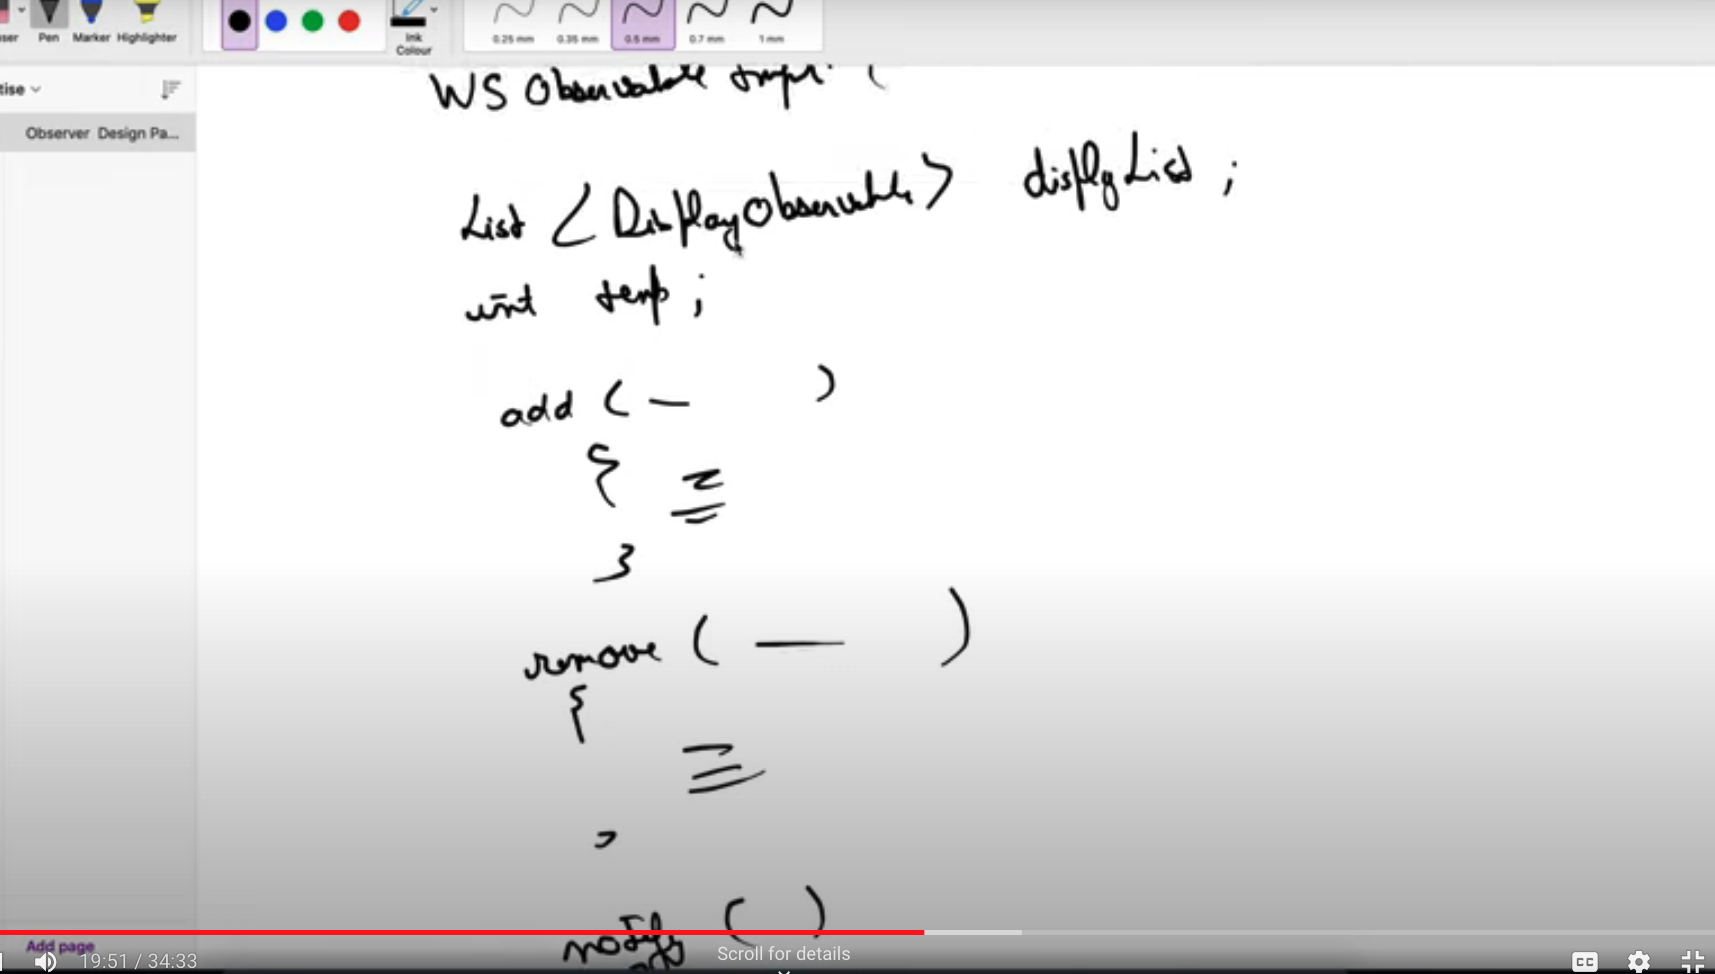 ser Pen Marker Highlighter Ink Colour 0.25 mm 0.35 mm 0.5 mm 0.7 mm 1 mm
tise
Observer Design Pa...
WS Observable Impl {
List <DisplayObservable> displyList ;
int temp ;
add ( — )
{
}
remove ( — )
{
notify ( )
Add page
19:51 / 34:33
Scroll for details
CC